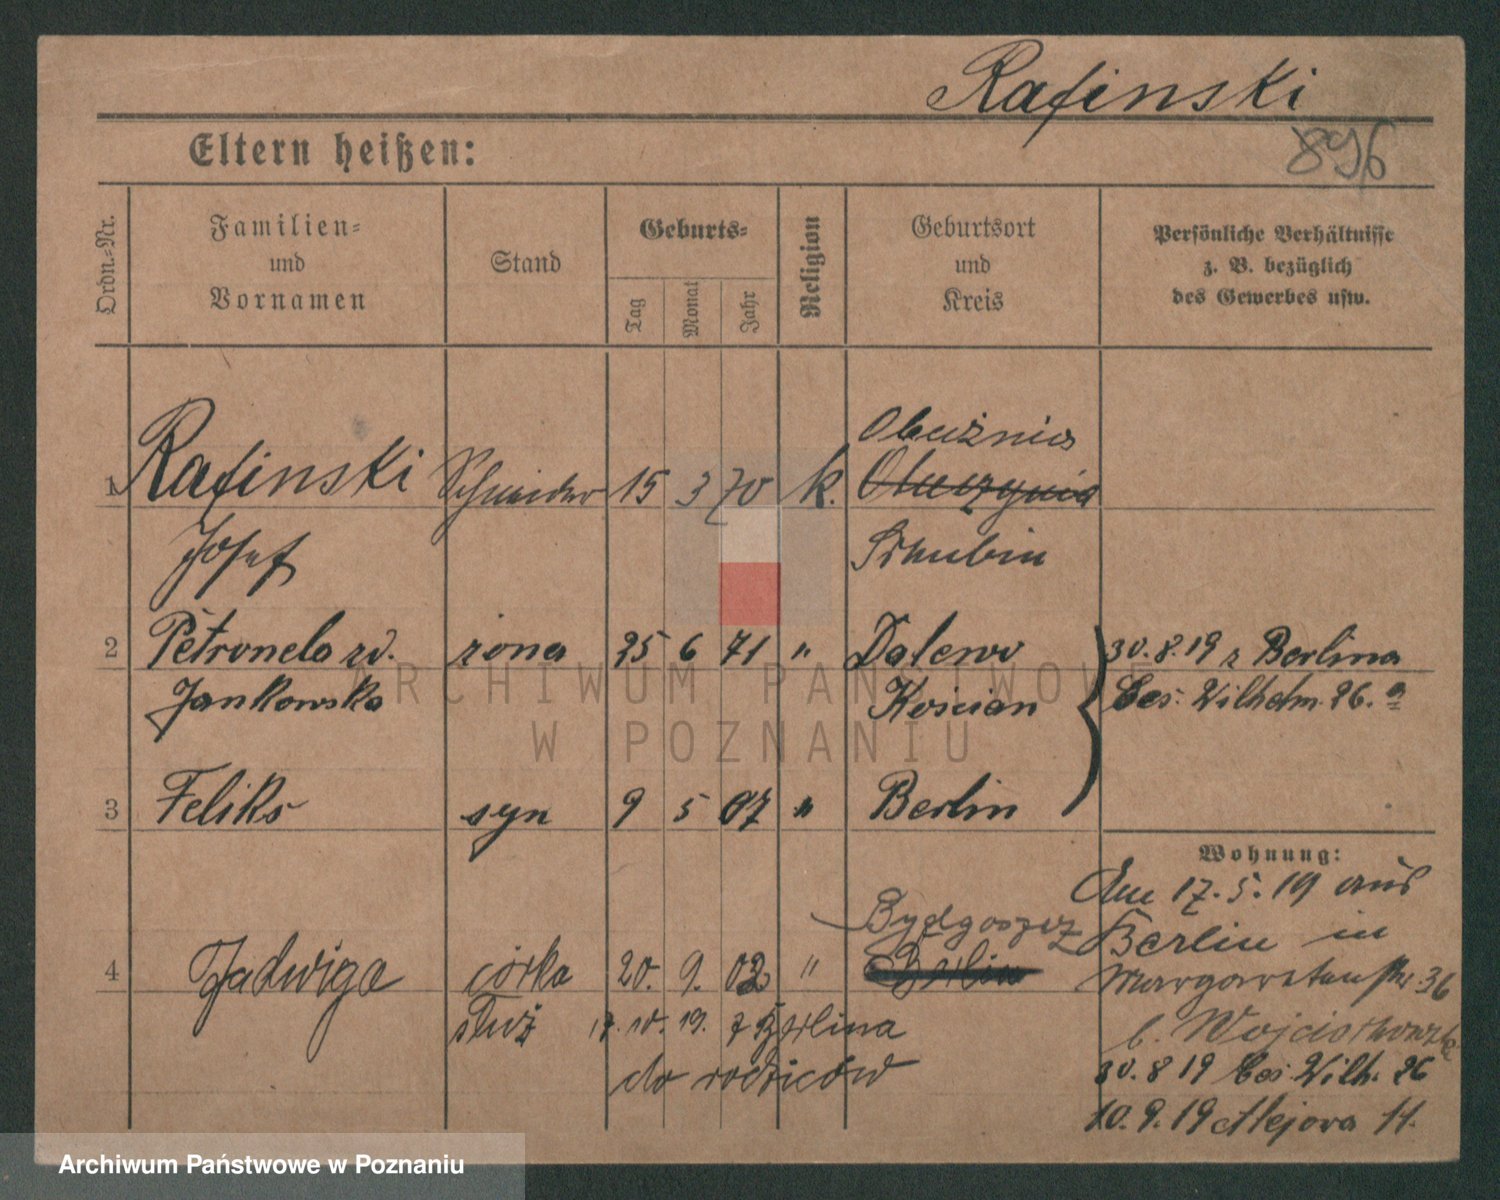 Rafinski
896
Eltern heißen:
Ordn.-Nr.
Familien-
und
Vornamen
Stand
Geburts-
Tag
Monat
Jahr
Religion
Geburtsort
und
Kreis
Persönliche Verhältnisse
z. B. bezüglich
des Gewerbes usw.
Obużnia
1 Rafinski Schneider 15 3 70 k.
Josef Schubin
2 Petronela zd. żona 25 6 71 " Dalewo 30.8.19 z Berlina
Jankowska Kościan Ces. Wilhelm. 26. a
3 Feliks syn 9 5 07 " Berlin
Wohnung:
Am 17.5.19 aus
Bydgoszcz Berlin in
4 Jadwiga córka 20. 9. 02 " Berlin Margaretenstr 36
służ 17. 10. 19. z Berlina b. Wojciechowski
do rodziców 30.8 19 Ces. Wilh. 26
10. 9. 19 Alejowa 11.
ARCHIWUM PAŃSTWOWE
W POZNANIU
Archiwum Państwowe w Poznaniu